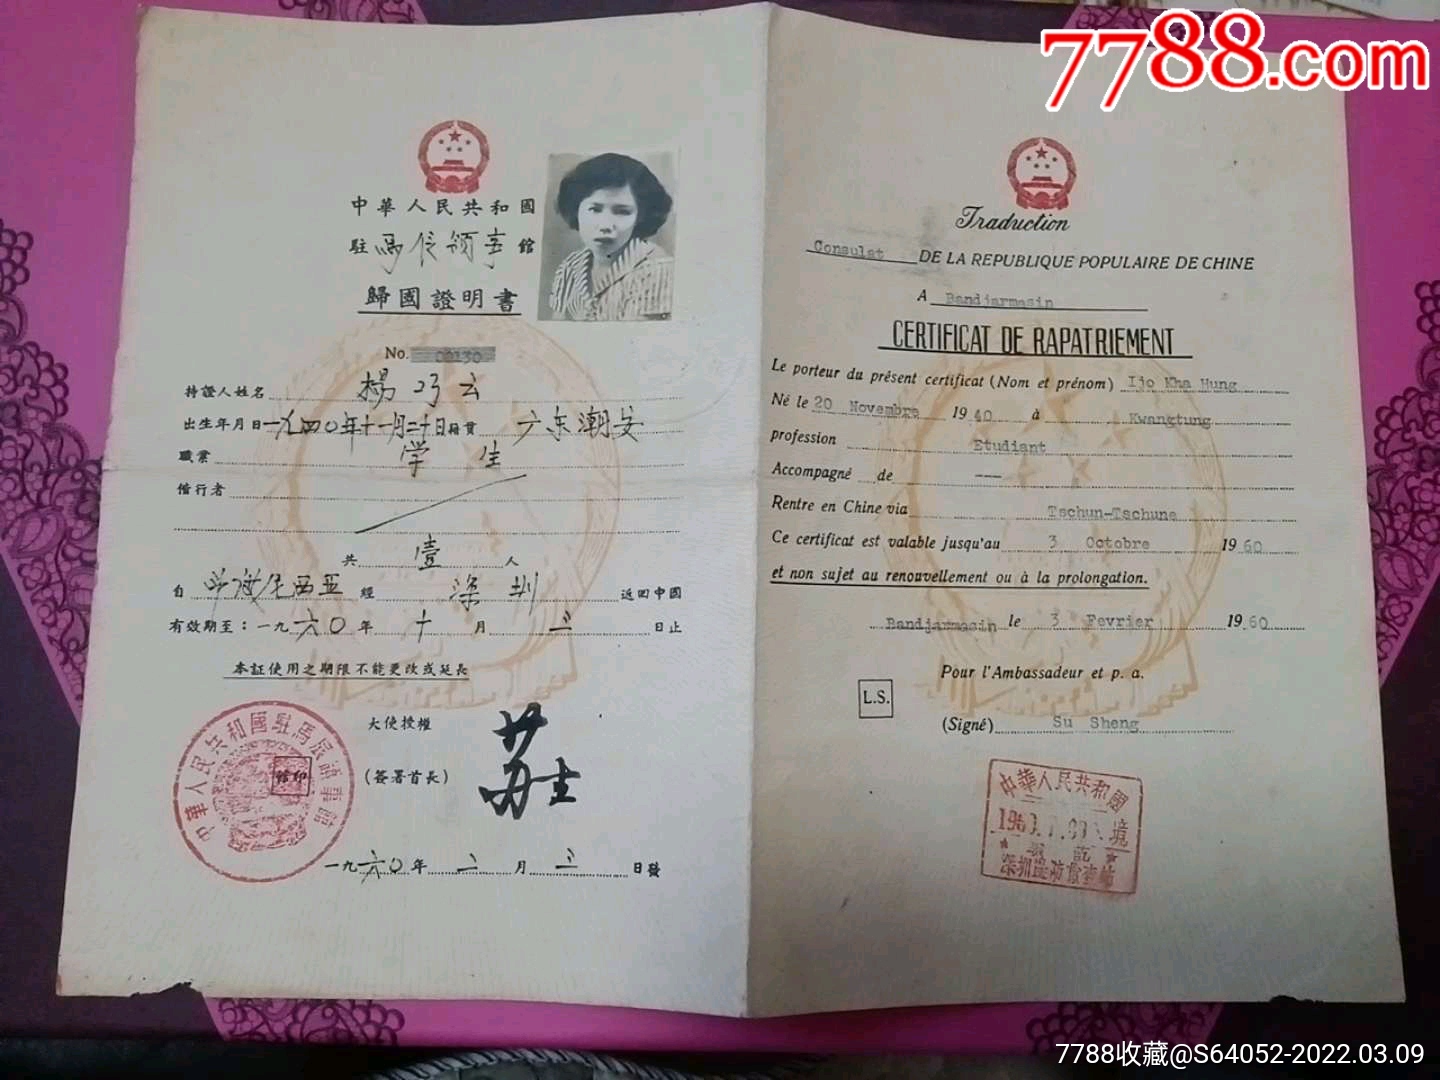 7788.com
中華人民共和國
駐馬辰領事館
歸國證明書
No. 00130
持證人姓名 楊巧云
出生年月日 一九四〇年十一月二十日 籍貫 广东潮安
職業 学生
偕行者
共 壹 人
自 印度尼西亚 經 深圳 返回中國
有效期至：一九六〇年 十 月 三 日止
本証使用之期限不能更改或延長
大使授權
(簽署首長)
中華人民共和國駐馬辰領事館
館印
一九六〇年 二 月 三 日發
Traduction
Consulat DE LA REPUBLIQUE POPULAIRE DE CHINE
A Bandjarmasin
CERTIFICAT DE RAPATRIEMENT
Le porteur du présent certificat (Nom et prénom) Ijo Kha Hung
Né le 20 Novembre 1940 à Kwangtung
profession Etudiant
Accompagné de ---
Rentre en Chine via Tschun-Tschune
Ce certificat est valable jusqu'au 3 Octobre 1960
et non sujet au renouvellement ou à la prolongation.
Bandjarmasin le 3 Fevrier 1960
Pour l'Ambassadeur et p. a.
L.S.
(Signé) Su Sheng
中華人民共和國
深圳边防檢查站
7788收藏@S64052-2022.03.09